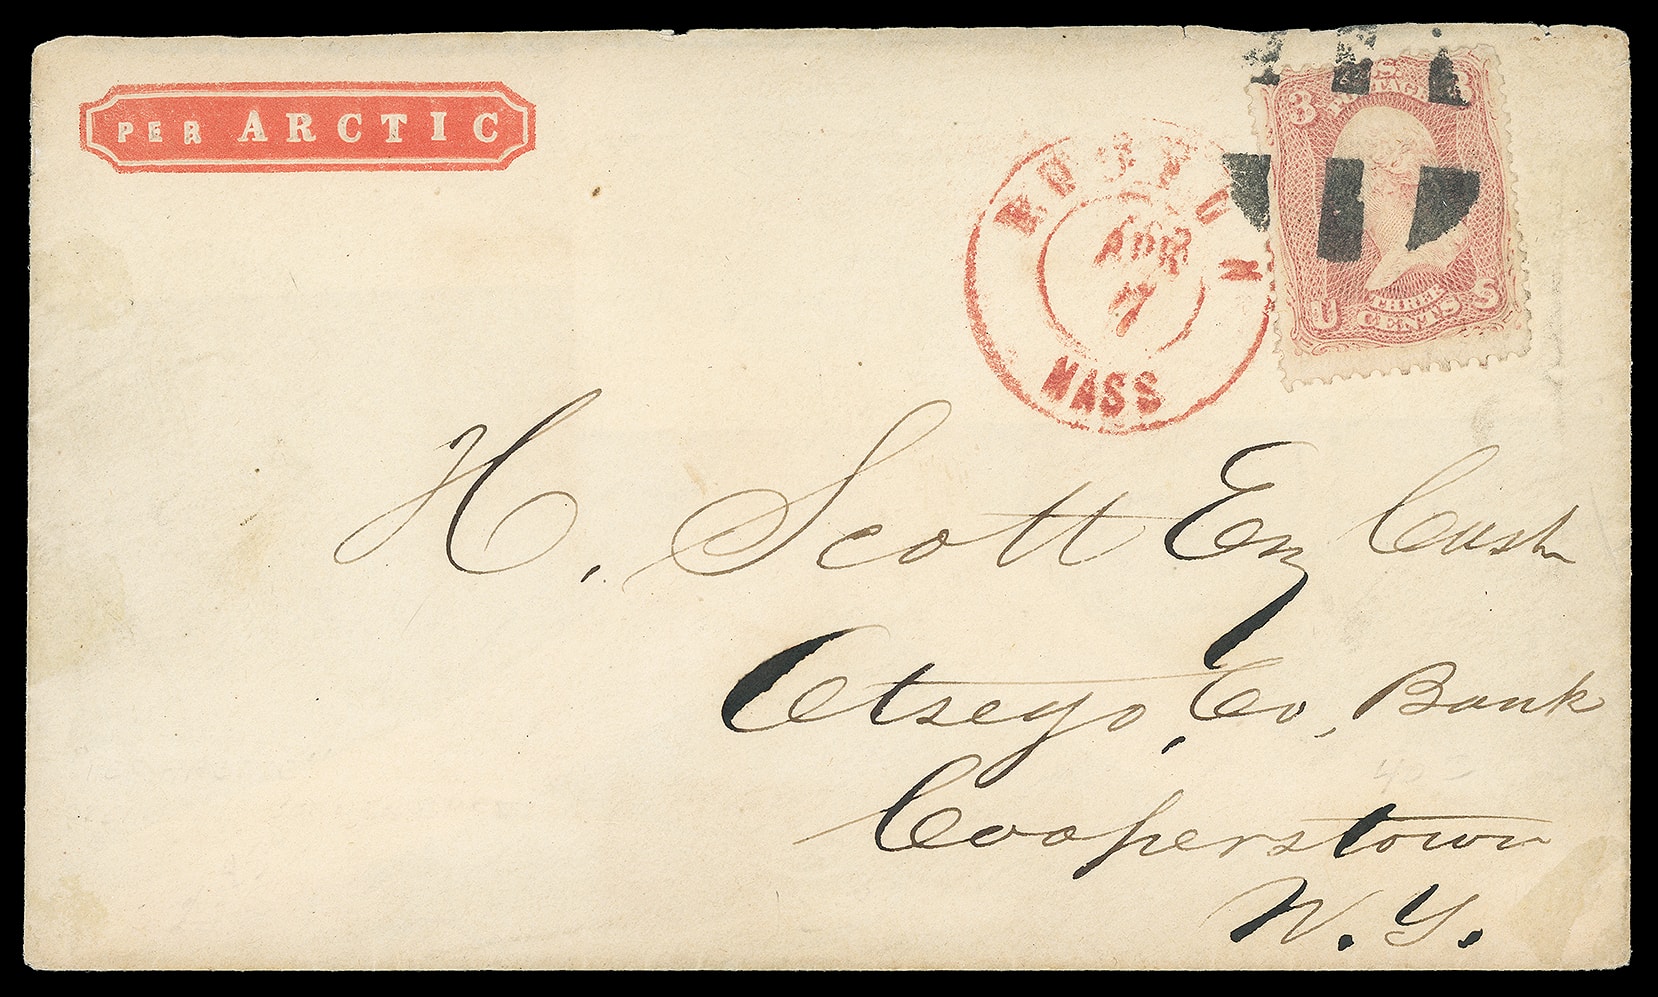 PER ARCTIC
BOSTON
APR
7
MASS
3 U.S. 3
POSTAGE
THREE
U CENTS S
H. Scott Esq Cash
Otsego, Co, Bank
Cooperstown
N. Y.